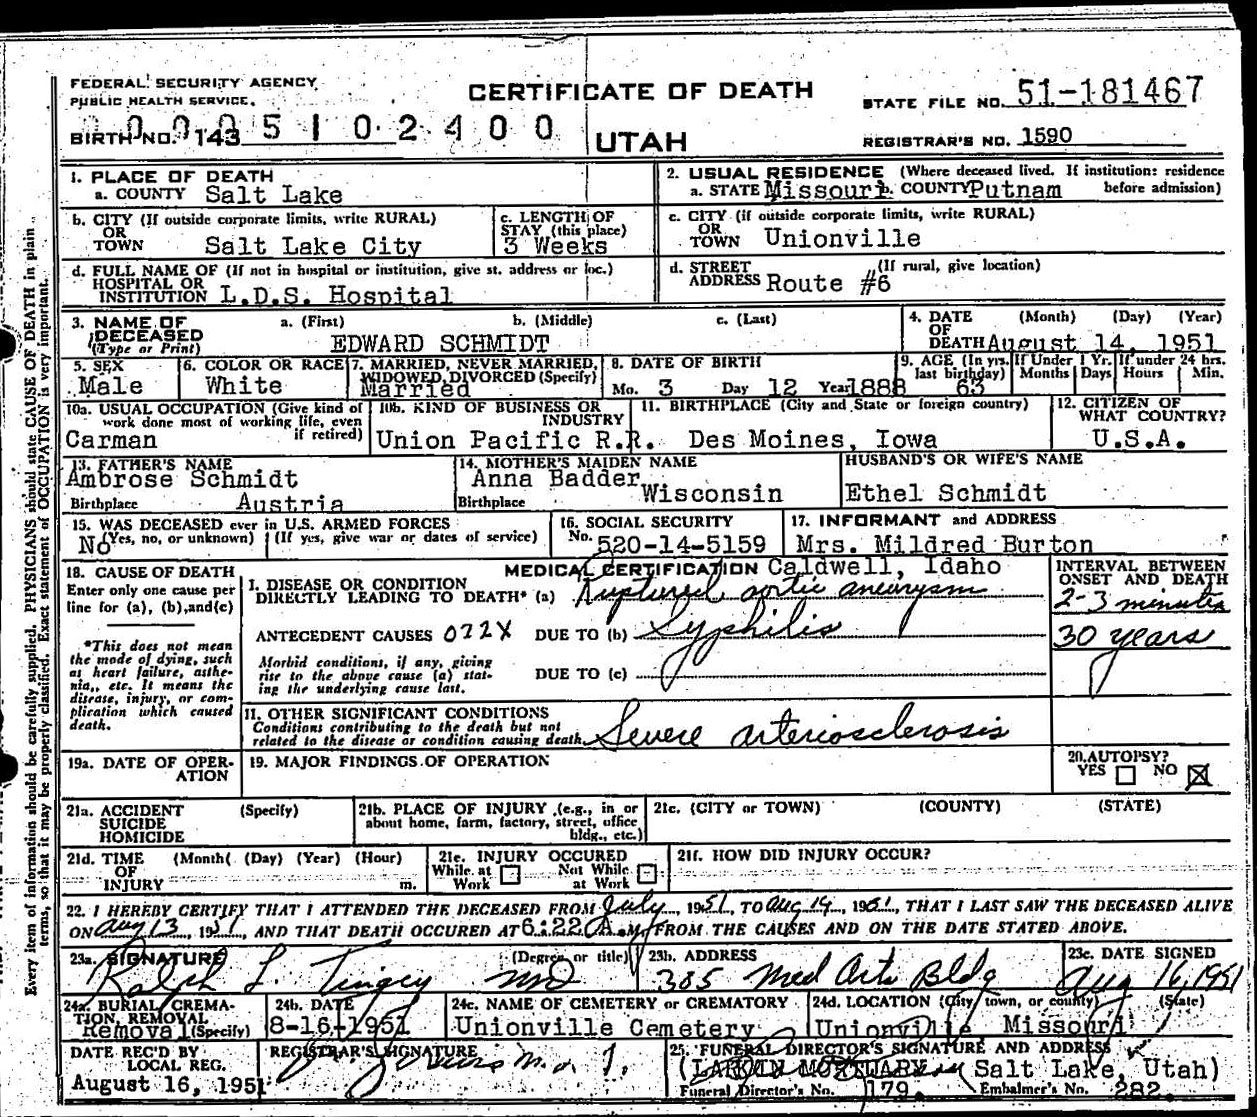 FEDERAL SECURITY AGENCY
PUBLIC HEALTH SERVICE.
CERTIFICATE OF DEATH
STATE FILE NO. 51-181467
0 0 0 5 1 0 2 4 0 0
BIRTH NO. 143
UTAH
REGISTRAR'S NO. 1590
1. PLACE OF DEATH
a. COUNTY Salt Lake
2. USUAL RESIDENCE (Where deceased lived. If institution: residence before admission)
a. STATE Missouri b. COUNTY Putnam
b. CITY (If outside corporate limits, write RURAL)
OR
TOWN Salt Lake City
c. LENGTH OF
STAY (this place)
3 Weeks
c. CITY (if outside corporate limits, write RURAL)
OR
TOWN Unionville
d. FULL NAME OF (If not in hospital or institution, give st. address or loc.)
HOSPITAL OR
INSTITUTION L.D.S. Hospital
d. STREET (If rural, give location)
ADDRESS Route #6
3. NAME OF a. (First) b. (Middle) c. (Last)
DECEASED
(Type or Print) EDWARD SCHMIDT
4. DATE (Month) (Day) (Year)
OF
DEATH August 14, 1951
5. SEX
Male
6. COLOR OR RACE
White
7. MARRIED, NEVER MARRIED,
WIDOWED, DIVORCED (Specify)
Married
8. DATE OF BIRTH
Mo. 3 Day 12 Year 1888
9. AGE (In yrs. last birthday)
63
If Under 1 Yr.
Months Days
If under 24 hrs.
Hours Min.
10a. USUAL OCCUPATION (Give kind of
work done most of working life, even
if retired)
Carman
10b. KIND OF BUSINESS OR
INDUSTRY
Union Pacific R.R.
11. BIRTHPLACE (City and State or foreign country)
Des Moines, Iowa
12. CITIZEN OF
WHAT COUNTRY?
U.S.A.
13. FATHER'S NAME
Ambrose Schmidt
Birthplace Austria
14. MOTHER'S MAIDEN NAME
Anna Badder
Birthplace Wisconsin
HUSBAND'S OR WIFE'S NAME
Ethel Schmidt
15. WAS DECEASED ever in U.S. ARMED FORCES
(Yes, no, or unknown) (If yes, give war or dates of service)
No
16. SOCIAL SECURITY
No. 520-14-5159
17. INFORMANT and ADDRESS
Mrs. Mildred Burton
Caldwell, Idaho
18. CAUSE OF DEATH
Enter only one cause per
line for (a), (b), and (c)
*This does not mean
the mode of dying, such
as heart failure, asthe-
nia, etc. It means the
disease, injury, or com-
plication which caused
death.
MEDICAL CERTIFICATION
I. DISEASE OR CONDITION
DIRECTLY LEADING TO DEATH* (a) Ruptured aortic aneurysm
ANTECEDENT CAUSES 022X DUE TO (b) Syphilis
Morbid conditions, if any, giving
rise to the above cause (a) stat-
ing the underlying cause last.
DUE TO (c)
INTERVAL BETWEEN
ONSET AND DEATH
2-3 minutes
30 years
II. OTHER SIGNIFICANT CONDITIONS
Conditions contributing to the death but not
related to the disease or condition causing death.
Severe arteriosclerosis
19a. DATE OF OPER-
ATION
19. MAJOR FINDINGS OF OPERATION
20. AUTOPSY?
YES ☐ NO ☒
21a. ACCIDENT (Specify)
SUICIDE
HOMICIDE
21b. PLACE OF INJURY (e.g., in or
about home, farm, factory, street, office
bldg., etc.)
21c. (CITY or TOWN) (COUNTY) (STATE)
21d. TIME (Month( (Day) (Year) (Hour)
OF
INJURY m.
21e. INJURY OCCURED
While at Work ☐ Not While at Work ☐
21f. HOW DID INJURY OCCUR?
22. I HEREBY CERTIFY THAT I ATTENDED THE DECEASED FROM July, 1951, TO Aug 14, 1951, THAT I LAST SAW THE DECEASED ALIVE
ON Aug 13, 1951, AND THAT DEATH OCCURED AT 6:22 A.M. FROM THE CAUSES AND ON THE DATE STATED ABOVE.
23a. SIGNATURE (Degree or title)
Ralph L. Tingey MD
23b. ADDRESS
385 Med Arts Bldg
23c. DATE SIGNED
Aug 16, 1951
24a. BURIAL, CREMA-
TION, REMOVAL
Removal (Specify)
24b. DATE
8-16-1951
24c. NAME OF CEMETERY or CREMATORY
Unionville Cemetery
24d. LOCATION (City, town, or county) (State)
Unionville Missouri
DATE REC'D BY
LOCAL REG.
August 16, 1951
REGISTRAR'S SIGNATURE
25. FUNERAL DIRECTOR'S SIGNATURE AND ADDRESS
(LARKIN MORTUARY Salt Lake, Utah)
Funeral Director's No. 179. Embalmer's No. 282.
Every item of information should be carefully supplied. PHYSICIANS should state CAUSE OF DEATH in plain
terms, so that it may be properly classified. Exact statement of OCCUPATION is very important.